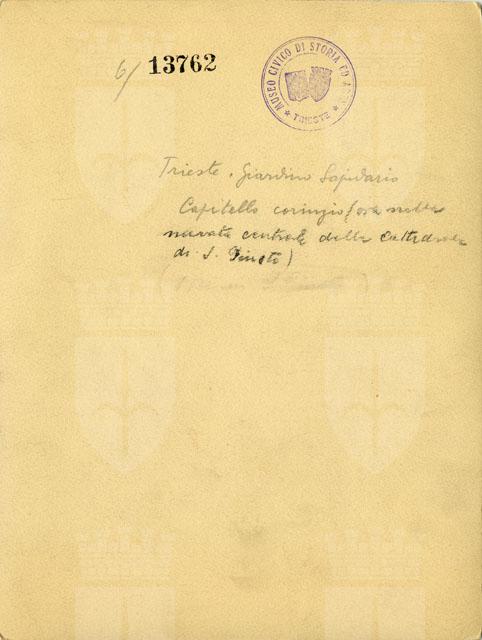 6/ 13762
MUSEO CIVICO DI STORIA ED ARTE
TRIESTE
Trieste. Giardino Lapidario
Capitello corinzio (ora nella
navata centrale della Cattedrale
di S. Giusto)